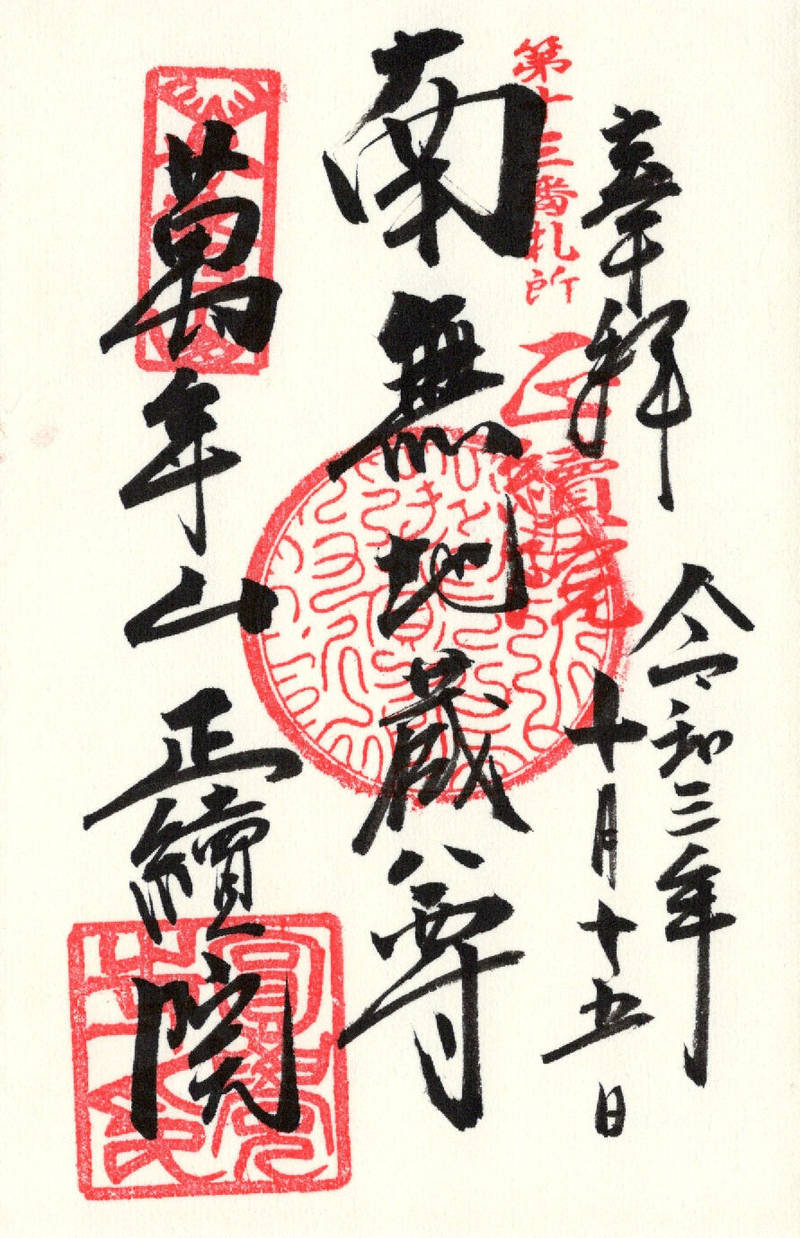 奉拝
令和三年
十月十五日
第十三番札所
正續院
南無地蔵尊
萬年山
正續院